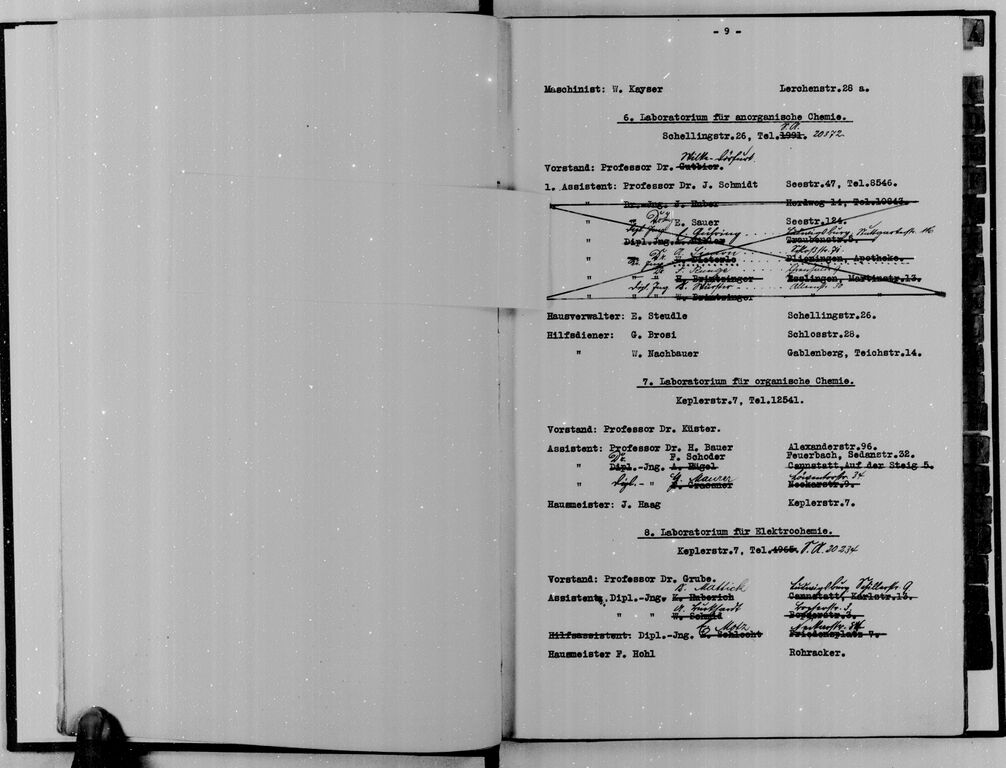 - 9 -
Maschinist: W. Kayser Lerchenstr.28 a.
6. Laboratorium für anorganische Chemie.
S.A.
Schellingstr.26, Tel.1991. 20872
Wilke-Dörfurt.
Vorstand: Professor Dr. Gutbier.
1. Assistent: Professor Dr. J. Schmidt Seestr.47, Tel.8546.
" Dr.-Jng. J. Huber Herdweg 14, Tel.10943.
" " Dr. E. Sauer Seestr.124.
Dipl. Jng. Gühring Ludwigsburg, Stuttgarterstr.
" Dipl.Jng. Traubenstr.5.
Dr. Simon Schoßstr.
" Dr. Jng. F. Dieterle Plieningen, Apotheke.
Dr. Runge
" " H. Brintzinger Esslingen, Martinstr.13.
Dipl. Jng Wurster
" " W. Brintzinger " "
Hausverwalter: E. Steudle Schellingstr.26.
Hilfsdiener: G. Brosi Schlosstr.28.
" W. Nachbauer Gablenberg, Teichstr.14.
7. Laboratorium für organische Chemie.
Keplerstr.7, Tel.12541.
Vorstand: Professor Dr. Küster.
Assistent: Professor Dr. H. Bauer Alexanderstr.96.
Dr. F. Schoder Feuerbach, Sedanstr.32.
" Dipl.-Jng. A. Hügel Cannstatt,Auf der Steig 5.
" Dipl.- " G. Maurer 34
Neckarstr.9.
Hausmeister: J. Haag Keplerstr.7.
8. Laboratorium für Elektrochemie.
Keplerstr.7, Tel.4965. S.A. 20234
Vorstand: Professor Dr. Grube.
Mattick Ludwigsburg Schillerstr. 9
Assistent, Dipl.-Jng. K. Haberich Cannstatt, Karlstr.13.
A. Burkhardt
" " W. Schmid
Motz Neckarstr. 34
Hilfsassistent: Dipl.-Jng. Schlecht Friedensplatz 7.
Hausmeister F. Hohl Rohracker.